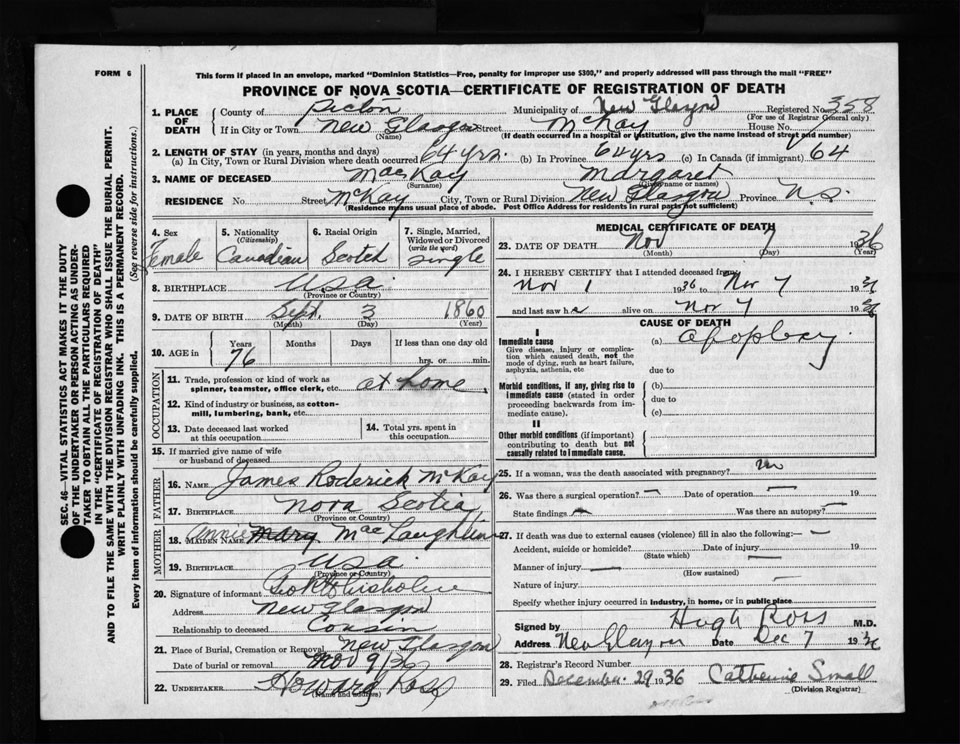 FORM 6
This form if placed in an envelope, marked "Dominion Statistics—Free, penalty for improper use $300," and properly addressed will pass through the mail "FREE"
PROVINCE OF NOVA SCOTIA—CERTIFICATE OF REGISTRATION OF DEATH
1. PLACE OF DEATH
County of Pictou Municipality of New Glasgow Registered No. 358
(For use of Registrar General only)
If in City or Town New Glasgow Street McKay House No.
(Name) (If death occurred in a hospital or institution, give the name instead of street and number)
2. LENGTH OF STAY (in years, months and days)
(a) In City, Town or Rural Division where death occurred 64 yrs. (b) In Province 64 yrs (c) In Canada (if immigrant) 64
3. NAME OF DECEASED MacKay Margaret
(Surname) (Given name or names)
RESIDENCE No. Street McKay City, Town or Rural Division New Glasgow Province N.S.
(Residence means usual place of abode. Post Office Address for residents in rural parts not sufficient)
4. Sex
Female
5. Nationality
(Citizenship)
Canadian
6. Racial Origin
Scotch
7. Single, Married, Widowed or Divorced
(write the word)
Single
8. BIRTHPLACE USA
(Province or Country)
9. DATE OF BIRTH Sept. 3 1860
(Month) (Day) (Year)
10. AGE in Years Months Days If less than one day old
76 hrs. or min.
OCCUPATION
11. Trade, profession or kind of work as spinner, teamster, office clerk, etc. at home
12. Kind of industry or business, as cotton-mill, lumbering, bank, etc.
13. Date deceased last worked at this occupation
14. Total yrs. spent in this occupation
15. If married give name of wife or husband of deceased
FATHER
16. NAME James Roderick McKay
17. BIRTHPLACE Nova Scotia
(Province or Country)
MOTHER
18. MAIDEN NAME Annie Mary MacLaughlin
19. BIRTHPLACE USA
(Province or Country)
20. Signature of informant Chisholm
Address New Glasgow
Relationship to deceased Cousin
21. Place of Burial, Cremation or Removal New Glasgow
Date of burial or removal Nov 9/36
22. UNDERTAKER Howard Ross
(Name and address)
MEDICAL CERTIFICATE OF DEATH
23. DATE OF DEATH Nov 7 1936
(Month) (Day) (Year)
24. I HEREBY CERTIFY that I attended deceased from
Nov 1 1936 to Nov 7 1936
and last saw her alive on Nov 7 1936
CAUSE OF DEATH
I
Immediate cause
Give disease, injury or complication which caused death, not the mode of dying, such as heart failure, asphyxia, asthenia, etc
(a) Apoplexy
due to
Morbid conditions, if any, giving rise to immediate cause (stated in order proceeding backwards from immediate cause).
(b)
due to
(c)
II
Other morbid conditions (if important) contributing to death but not causally related to immediate cause.
25. If a woman, was the death associated with pregnancy? no
26. Was there a surgical operation? — Date of operation — 19
State findings — Was there an autopsy? —
27. If death was due to external causes (violence) fill in also the following:—
Accident, suicide or homicide? Date of injury 19
(State which)
Manner of injury
(How sustained)
Nature of injury
Specify whether injury occurred in industry, in home, or in public place
Signed by Hugh Ross M.D.
Address New Glasgow Date Dec 7 1936
28. Registrar's Record Number
29. Filed December 29 1936 Catherine Small
(Division Registrar)
SEC. 46—VITAL STATISTICS ACT MAKES IT THE DUTY
OF THE UNDERTAKER OR PERSON ACTING AS UNDER-
TAKER TO OBTAIN ALL THE PARTICULARS REQUIRED
IN THE "CERTIFICATE OF REGISTRATION OF DEATH"
AND TO FILE THE SAME WITH THE DIVISION REGISTRAR WHO SHALL ISSUE THE BURIAL PERMIT.
WRITE PLAINLY WITH UNFADING INK. THIS IS A PERMANENT RECORD.
Every item of information should be carefully supplied. (See reverse side for instructions.)